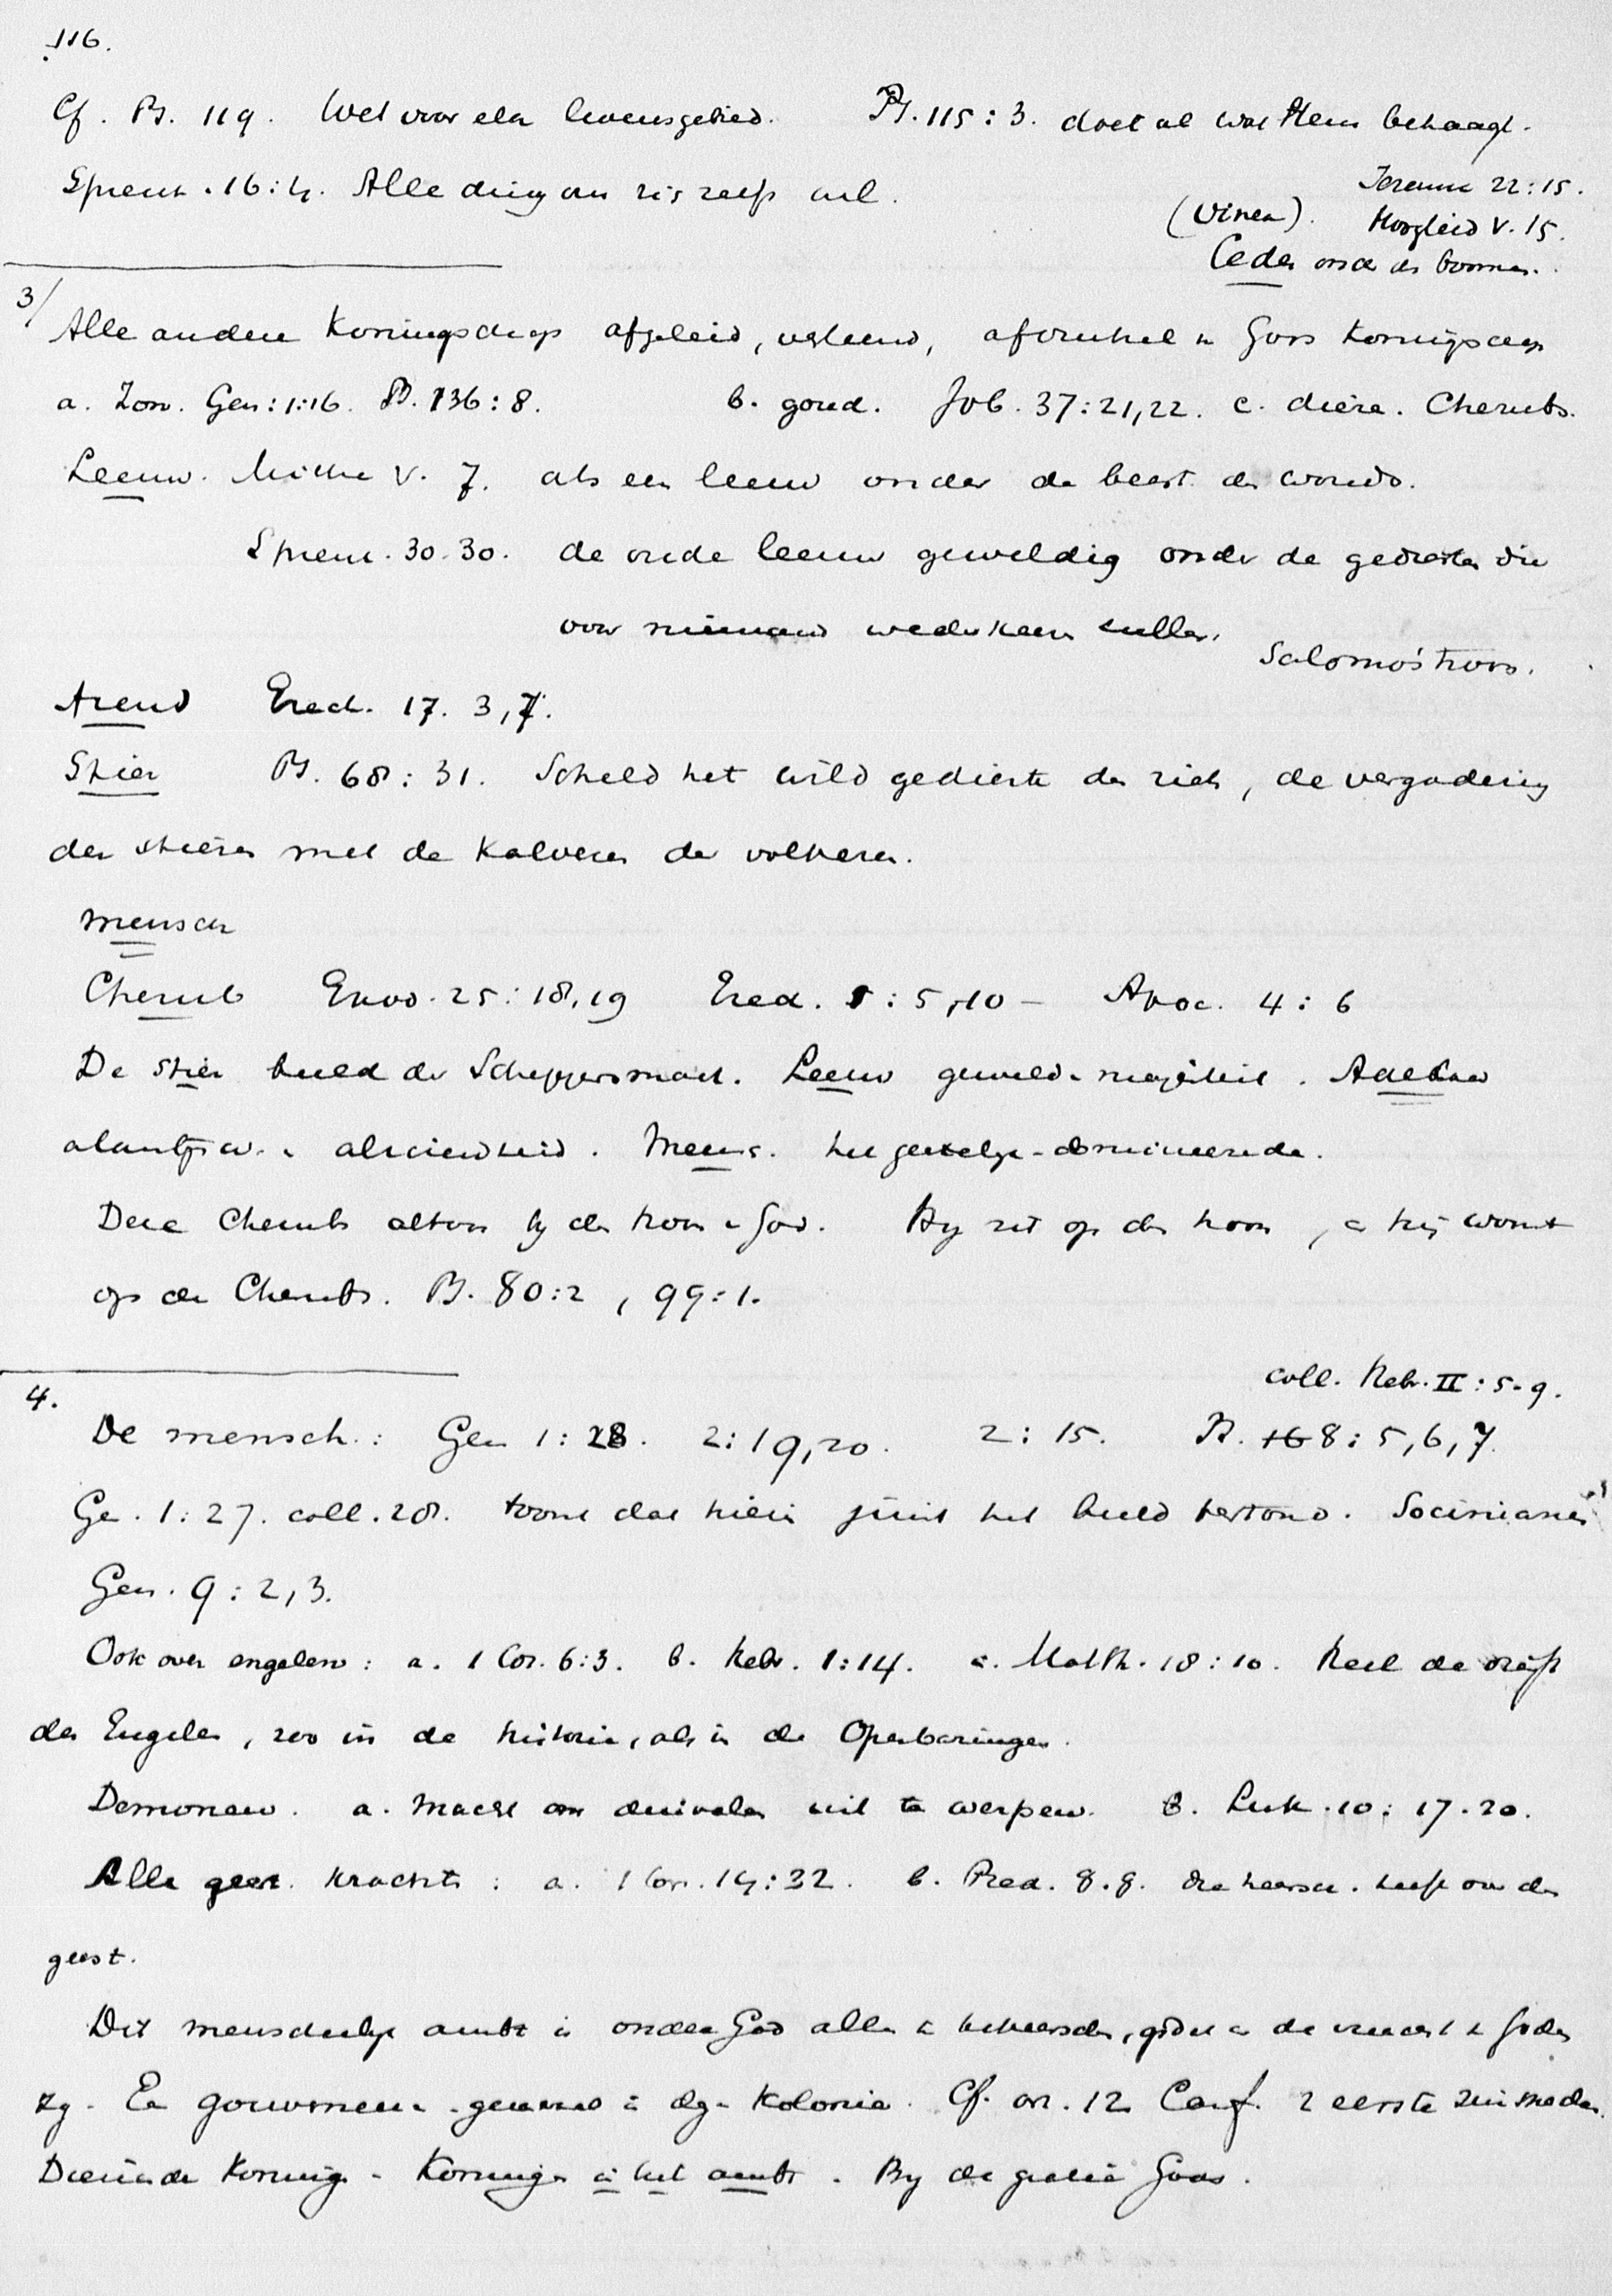 116.
Cf. Ps. 119. Wet voor elk levensgebied. Ps. 115:3. doet al wat Hem behaagt.
Spreuk. 16:4. Alle ding om zijs zelfs wil.
Jeremia 22:15.
(Vinea). Hooglied V. 15.
Ceder onder de boomen.
3/
Alle andere Koningschap afgeleid, verleend, afdruksel v. Gods Koningschap
a. Zon. Gen: 1:16. Ps. 136:8. b. goud. Job. 37:21,22. c. dieren. Cherubs.
Leeuw. Micha V. 7. als een leeuw onder de beest. des wouds.
Spreuk. 30.30. de oude leeuw geweldig onder de gedierten die
voor niemand wederkeeren zullen.
Salomo's troon.
Arend Ezech. 17. 3,7.
Stier Ps. 68:31. Scheld het wild gedierte des riets, de vergadering
der stieren met de Kalveren der volkeren.
mensch
Cherub Exod. 25:18,19 Ezech. 1:5,10 – Apoc. 4:6
De stier beeld der Scheppersmacht. Leeuw geweld – majesteit. Adelaar
alomtgw. – alziendheid. Mensch. het geestelijk-domineerende.
Deze Cherubs altoos bij den troon v God. Hij zit op den troon, en hij woont
op de Cherubs. Ps. 80:2, 99:1.
coll. Hebr. II:5-9.
4.
De mensch: Gen 1:28. 2:19,20. 2:15. Ps. 8:5,6,7.
Ge. 1:27. coll. 28. toont dat hierin juist het beeld bestond. Socinianen
Gen. 9:2,3.
Ook over engelen: a. 1 Cor. 6:3. b. Hebr. 1:14. c. Matth. 18:10. Heel de
der Engelen, zoo in de historie, als in de Openbaringen.
Demonen. a. Macht om duivelen uit te werpen. b. Luk. 10:17-20.
Alle geest. Krachten: a. 1 Cor. 14:32. b. Pred. 8.8. die heersch. heeft over den
geest.
Dit menschelijk ambt is onder God alles te beheerschen, en de Gods
zij. Een gouverneur-generaal in Kolonie. Cf. Art. 12 Conf. 2 eerste zinsneden.
Dienende Koning – Koning in het ambt. Bij de gratie Gods.